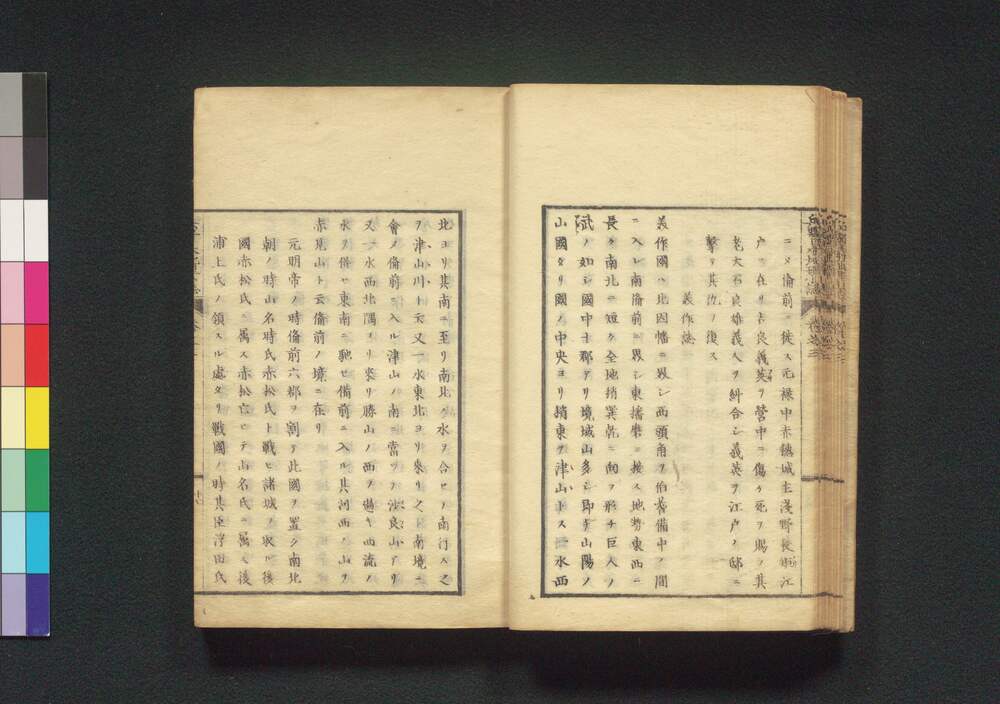 ニメ備前ニ徙ス元禄中赤穗城主淺野長矩江
戸ニ在リ吉良義英ヲ營中ニ傷ケ死ヲ賜フ其
老大石良雄義人ヲ糾合シ義英ヲ江戸ノ邸ニ
撃チ其仇ヲ復ス
美作誌
美作國ハ北因幡ニ界シ西頭角ヲ伯耆備中ノ間
ニ入レ南備前ニ界シ東播磨ニ接ス地勢東西ニ
長ク南北ニ短ク全地稍巽乾ニ向フ形チ巨人ノ
武ノ如シ國中十郡アリ境域山多シ即チ山陽ノ
山國タリ國ノ中央ヨリ稍東ヲ津山トス一水西
北ヨリ其南ニ至リ南北ノ水ヲ合セテ南行ス之
ヲ津山川ト云又一水東北ヨリ來リ之ト南境ニ
會シ備前ニ入ル津山ノ南ニ當テ沙良山アリ
又一水西北隅ヨリ來リ勝山ノ西ヲ過キ西流ノ
水ヲ併セ東南ニ馳セ備前ニ入ル其河西ノ山ヲ
赤見山ト云備前ノ境ニ在リ
元明帝ノ時備前六郡ヲ割テ此國ヲ置ク南北
朝ノ時山名時氏赤松氏ト戰ヒ諸城ヲ取ル後
國赤松氏ニ屬ス赤松亡ヒテ山名氏ニ屬シ後
浦上氏ノ領スル處タリ戰國ノ時其臣浮田氏